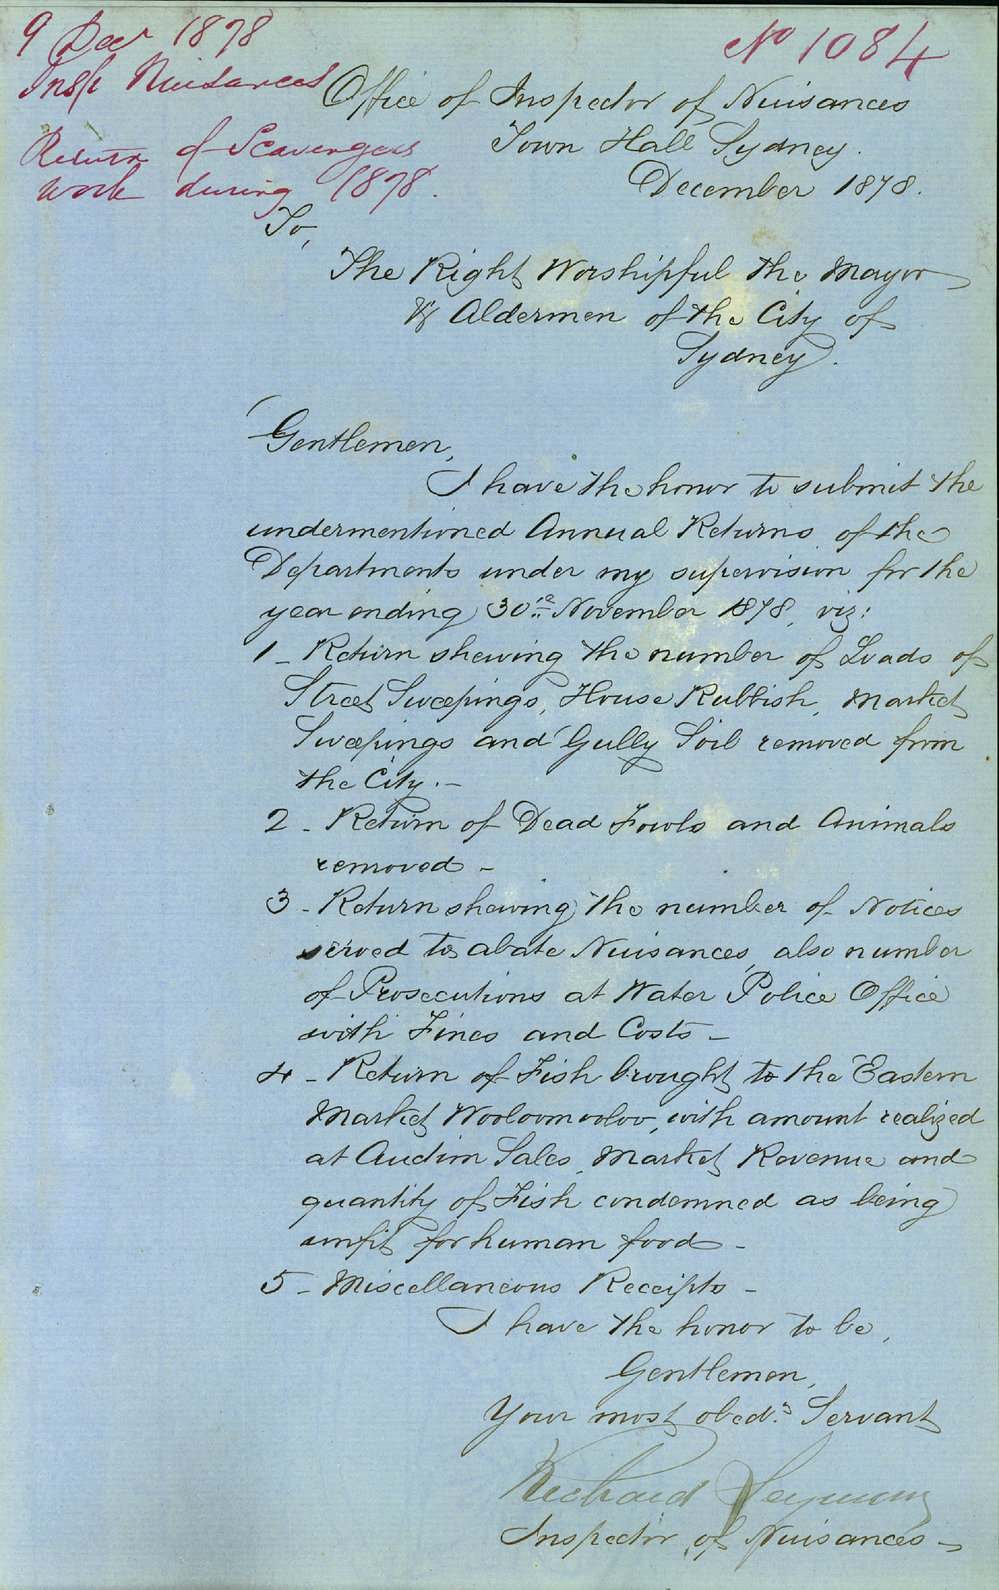 9 Decr 1878
No 1084
Insp Nuisances
Return of Scavengers
work during 1878.
Office of Inspector of Nuisances
Town Hall Sydney.
December 1878.
To,
The Right Worshipful the Mayor
& Aldermen of the City of
Sydney.
Gentlemen,
I have the honor to submit the
undermentioned Annual Returns of the
Departments under my supervision for the
year ending 30th November 1878, viz:
1 - Return shewing the number of Loads of
Street Sweepings, House Rubbish, Market
Sweepings and Gully Soil removed from
the City. -
2 - Return of Dead Fowls and Animals
removed -
3 - Return shewing the number of Notices
served to abate Nuisances, also number
of Prosecutions at Water Police Office
with Fines and Costs -
4 - Return of Fish brought to the Eastern
Market Wooloomooloo, with amount realized
at Auction Sales, Market Revenue and
quantity of Fish condemned as being
unfit for human food -
5 - Miscellaneous Receipts -
I have the honor to be,
Gentlemen,
Your most obedt Servant
Richard Seymour
Inspector of Nuisances -